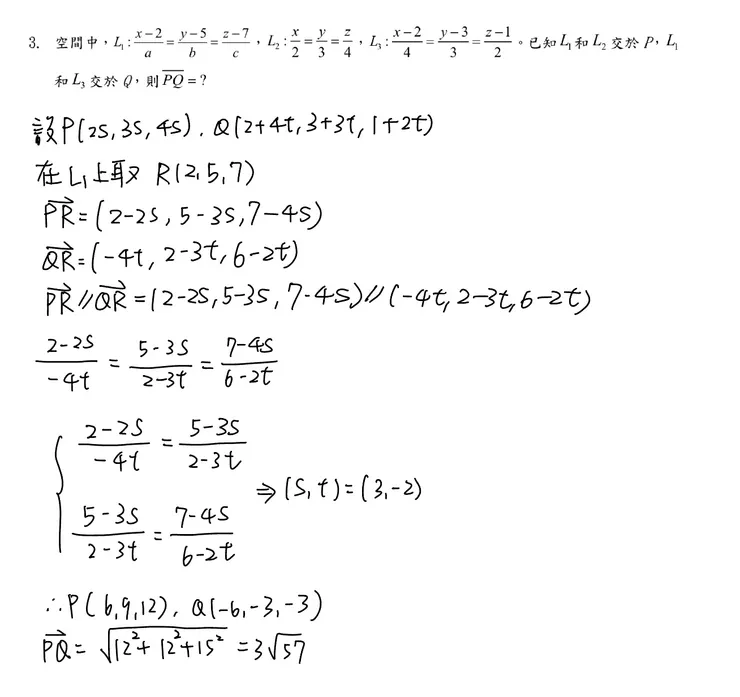 3. 空間中，L₁:\frac{x-2}{a}=\frac{y-5}{b}=\frac{z-7}{c}，L₂:\frac{x}{2}=\frac{y}{3}=\frac{z}{4}，L₃:\frac{x-2}{4}=\frac{y-3}{3}=\frac{z-1}{2}。已知L₁和L₂交於P，L₁
和L₃交於Q，則\overline{PQ}=?
設P(2s,3s,4s)、Q(2+4t,3+3t,1+2t)
在L₁上取 R(2,5,7)
\overrightarrow{PR}=(2-2s,5-3s,7-4s)
\overrightarrow{QR}=(-4t,2-3t,6-2t)
\overrightarrow{PR}//\overrightarrow{QR}=(2-2s,5-3s,7-4s)//(-4t,2-3t,6-2t)
\frac{2-2s}{-4t}=\frac{5-3s}{2-3t}=\frac{7-4s}{6-2t}
\frac{2-2s}{-4t}=\frac{5-3s}{2-3t}
⇒(s,t)=(3,-2)
\frac{5-3s}{2-3t}=\frac{7-4s}{6-2t}
∴P(6,9,12)、Q(-6,-3,-3)
\overrightarrow{PQ}=\sqrt{12²+12²+15²}=3\sqrt{57}